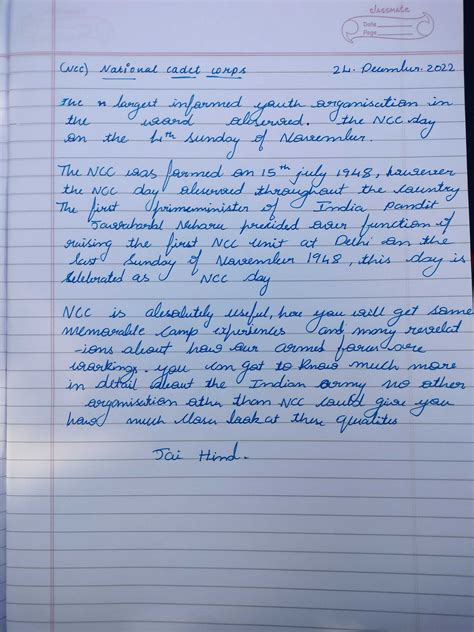 classmate
Date
Page
(NCC) National cadet corps 24. December. 2022
The n largest informed youth organisation in
the woard observed. the NCC day
on the 4th sunday of November.
The NCC was formed on 15th july 1948, however
the NCC day observed throughout the country
The first primeminister of India Pandit
Jawraharlal Neharu precided over function of
raising the first NCC unit at Delhi on the
last Sunday of November 1948, this day is
Selebrated as NCC day
NCC is absolutely useful, here you will get some
memorable camp experiences and many revelat
-ions about how our armed forces are
working. you can got to know much more
in detail about the Indian army no other
organisation other than NCC could give you
how much closer look at these qualities
Jai Hind.